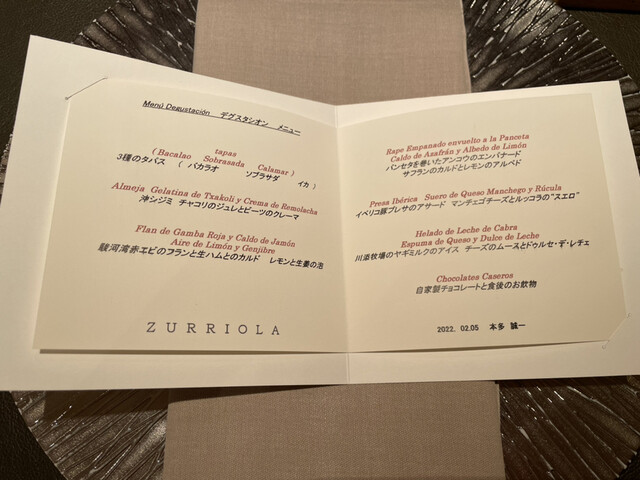 Menú Degustación デグスタシオン メニュー
tapas
(Bacalao Sobrasada Calamar)
3種のタパス ( バカラオ ソブラサダ イカ )
Almeja Gelatina de Txakoli y Crema de Remolacha
沖シジミ チャコリのジュレとビーツのクレーマ
Flan de Gamba Roja y Caldo de Jamón
Aire de Limón y Genjibre
駿河湾赤エビのフランと生ハムとのカルド レモンと生姜の泡
ZURRIOLA
Rape Empanado envuelto a la Panceta
Caldo de Azafrán y Albedo de Limón
パンセタを巻いたアンコウのエンパナード
サフランのカルドとレモンのアルベド
Presa Ibérica Suero de Queso Manchego y Rúcula
イベリコ豚プレサのアサード マンチェゴチーズとルッコラの"スエロ"
Helado de Leche de Cabra
Espuma de Queso y Dulce de Leche
川添牧場のヤギミルクのアイス チーズのムースとドゥルセ・デ・レチェ
Chocolates Caseros
自家製チョコレートと食後のお飲物
2022. 02.05 本多 誠一